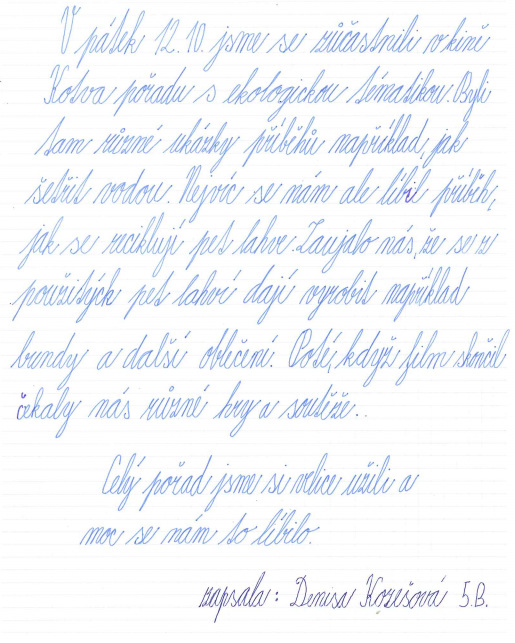 V pátek 12.10. jsme se zůčastnili v kině
Kotva pořadu s ekologickou tématikou. Byli
tam různé ukázky příběhů například, jak
šetřit vodou. Nejvíc se nám ale líbil příběh,
jak se reciklují pet lahve. Zaujalo nás, že se z
použitých pet lahví dají vyrobit například
bundy a další oblečení. Poté, když film skončil
čekaly nás různé hry a soutěže..
Celý pořad jsme si velice užili a
moc se nám to líbilo.
zapsala: Denisa Kozešová 5.B.